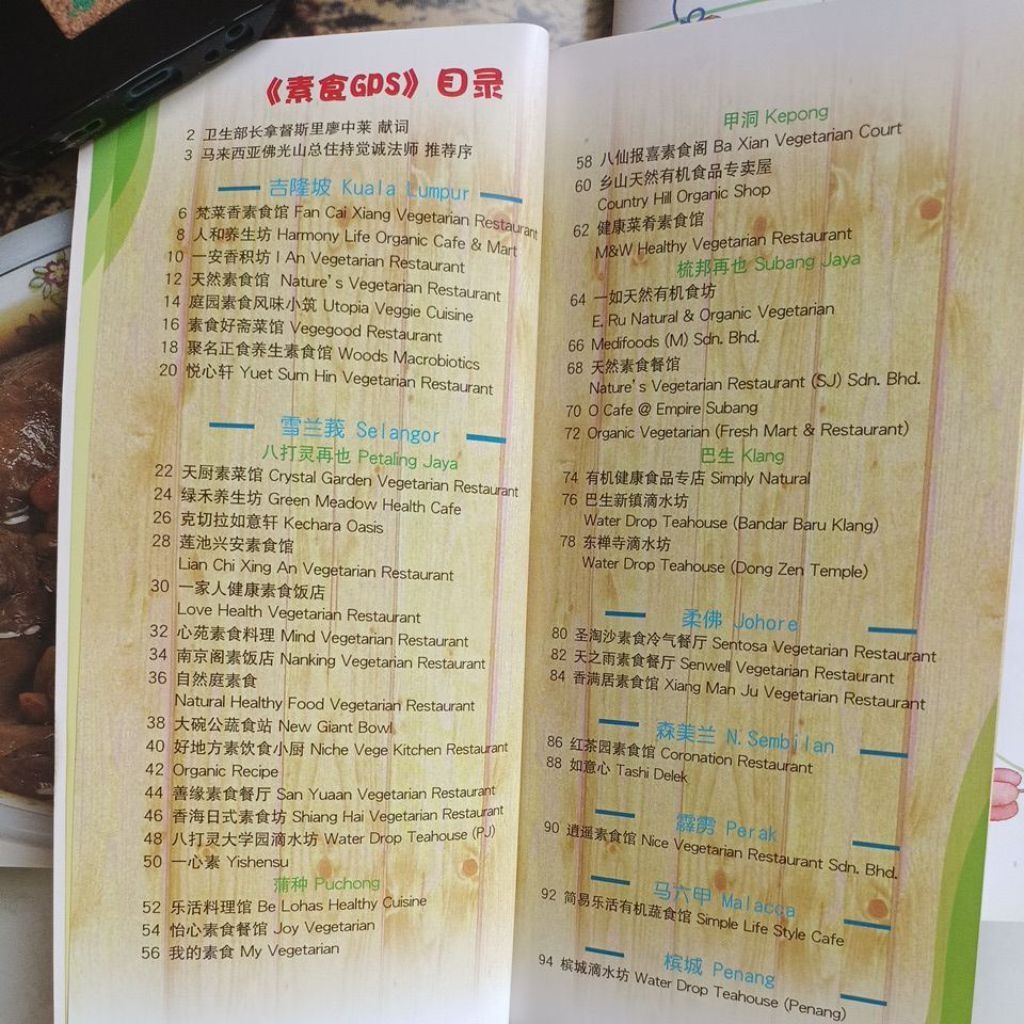 《素食GPS》目录
2 卫生部长拿督斯里廖中莱 献词
3 马来西亚佛光山总住持觉诚法师 推荐序
吉隆坡 Kuala Lumpur
6 梵菜香素食馆 Fan Cai Xiang Vegetarian Restaurant
8 人和养生坊 Harmony Life Organic Cafe & Mart
10 一安香积坊 I An Vegetarian Restaurant
12 天然素食馆 Nature's Vegetarian Restaurant
14 庭园素食风味小筑 Utopia Veggie Cuisine
16 素食好斋菜馆 Vegegood Restaurant
18 聚名正食养生素食馆 Woods Macrobiotics
20 悦心轩 Yuet Sum Hin Vegetarian Restaurant
雪兰莪 Selangor
八打灵再也 Petaling Jaya
22 天厨素菜馆 Crystal Garden Vegetarian Restaurant
24 绿禾养生坊 Green Meadow Health Cafe
26 克切拉如意轩 Kechara Oasis
28 莲池兴安素食馆
Lian Chi Xing An Vegetarian Restaurant
30 一家人健康素食饭店
Love Health Vegetarian Restaurant
32 心苑素食料理 Mind Vegetarian Restaurant
34 南京阁素饭店 Nanking Vegetarian Restaurant
36 自然庭素食
Natural Healthy Food Vegetarian Restaurant
38 大碗公蔬食站 New Giant Bowl
40 好地方素饮食小厨 Niche Vege Kitchen Restaurant
42 Organic Recipe
44 善缘素食餐厅 San Yuaan Vegetarian Restaurant
46 香海日式素食坊 Shiang Hai Vegetarian Restaurant
48 八打灵大学园滴水坊 Water Drop Teahouse (PJ)
50 一心素 Yishensu
蒲种 Puchong
52 乐活料理馆 Be Lohas Healthy Cuisine
54 怡心素食餐馆 Joy Vegetarian
56 我的素食 My Vegetarian
甲洞 Kepong
58 八仙报喜素食阁 Ba Xian Vegetarian Court
60 乡山天然有机食品专卖屋
Country Hill Organic Shop
62 健康菜肴素食馆
M&W Healthy Vegetarian Restaurant
梳邦再也 Subang Jaya
64 一如天然有机食坊
E. Ru Natural & Organic Vegetarian
66 Medifoods (M) Sdn. Bhd.
68 天然素食餐馆
Nature's Vegetarian Restaurant (SJ) Sdn. Bhd.
70 O Cafe @ Empire Subang
72 Organic Vegetarian (Fresh Mart & Restaurant)
巴生 Klang
74 有机健康食品专店 Simply Natural
76 巴生新镇滴水坊
Water Drop Teahouse (Bandar Baru Klang)
78 东禅寺滴水坊
Water Drop Teahouse (Dong Zen Temple)
柔佛 Johore
80 圣淘沙素食冷气餐厅 Sentosa Vegetarian Restaurant
82 天之雨素食餐厅 Senwell Vegetarian Restaurant
84 香满居素食馆 Xiang Man Ju Vegetarian Restaurant
森美兰 N.Sembilan
86 红茶园素食馆 Coronation Restaurant
88 如意心 Tashi Delek
霹雳 Perak
90 逍遥素食馆 Nice Vegetarian Restaurant Sdn. Bhd.
马六甲 Malacca
92 简易乐活有机蔬食馆 Simple Life Style Cafe
槟城 Penang
94 槟城滴水坊 Water Drop Teahouse (Penang)